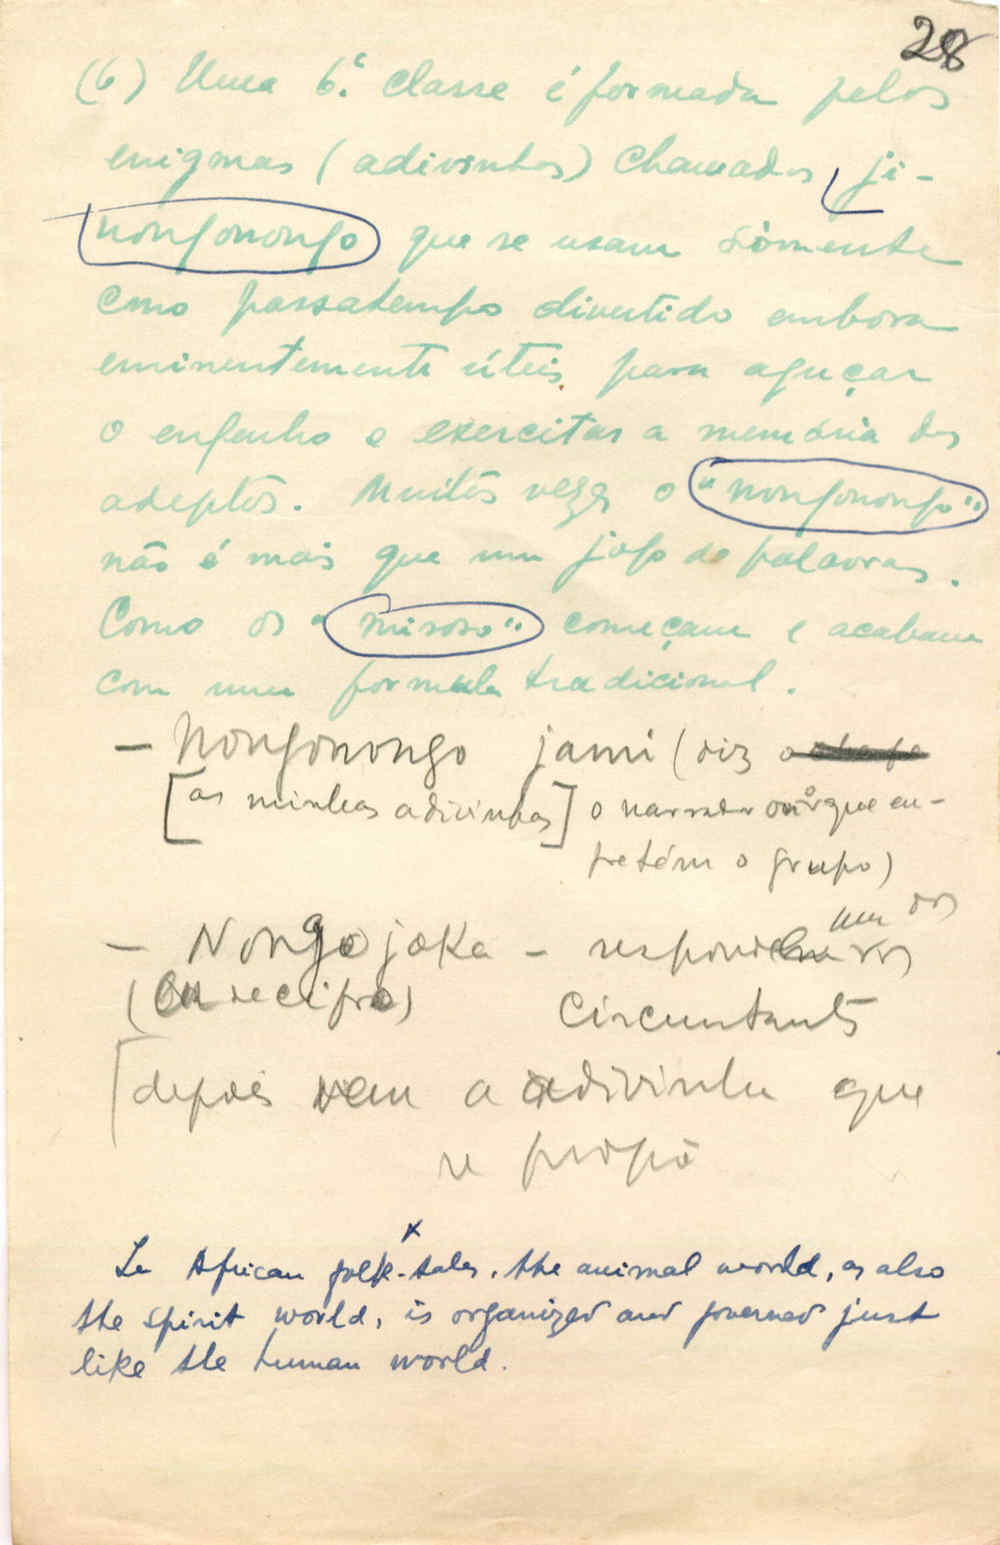 28
(6) Uma 6.ª classe é formada pelos
enigmas (adivinhas) chamados ji-
nongonongo que se usam sòmente
como passatempo divertido embora
eminentemente úteis para aguçar
o engenho e exercitar a memória dos
adeptos. Muitas vezes o "nongonongo"
não é mais que um jogo de palavras.
Como os "misoso" começam e acabam
com uma formula tradicional.
— Nongonongo jami (diz
[as minhas adivinhas] o narrador que en-
tretém o grupo)
— Nongo jaka - respondem os
(em recipro) circunstantes
[depois vem a adivinha que
se propõ
x
In African folk-tales, the animal world, as also
the spirit world, is organized and governed just
like the human world.